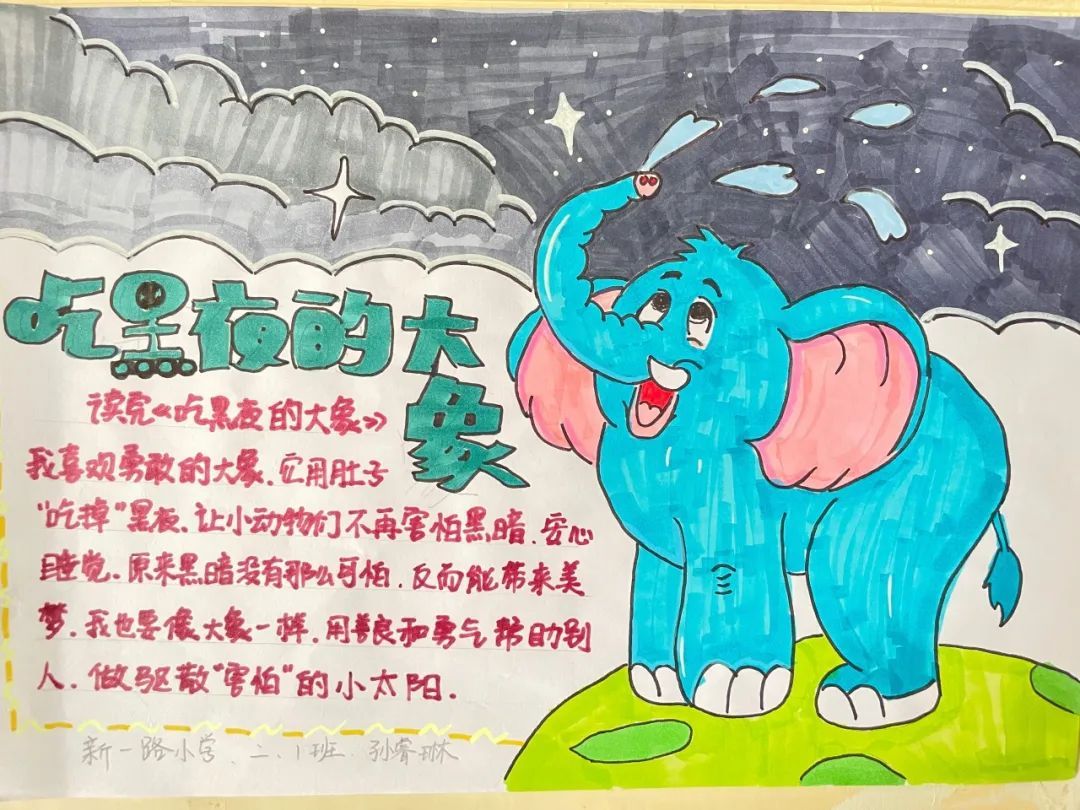 吃黑夜的大象
读完《吃黑夜的大象》
我喜欢勇敢的大象.它用肚子
"吃掉"黑夜.让小动物们不再害怕黑暗.安心
睡觉.原来黑暗没有那么可怕.反而能带来美
梦.我也要像大象一样.用善良和勇气帮助别
人.做驱散"害怕"的小太阳.
新一路小学、二、1班.孙睿琳